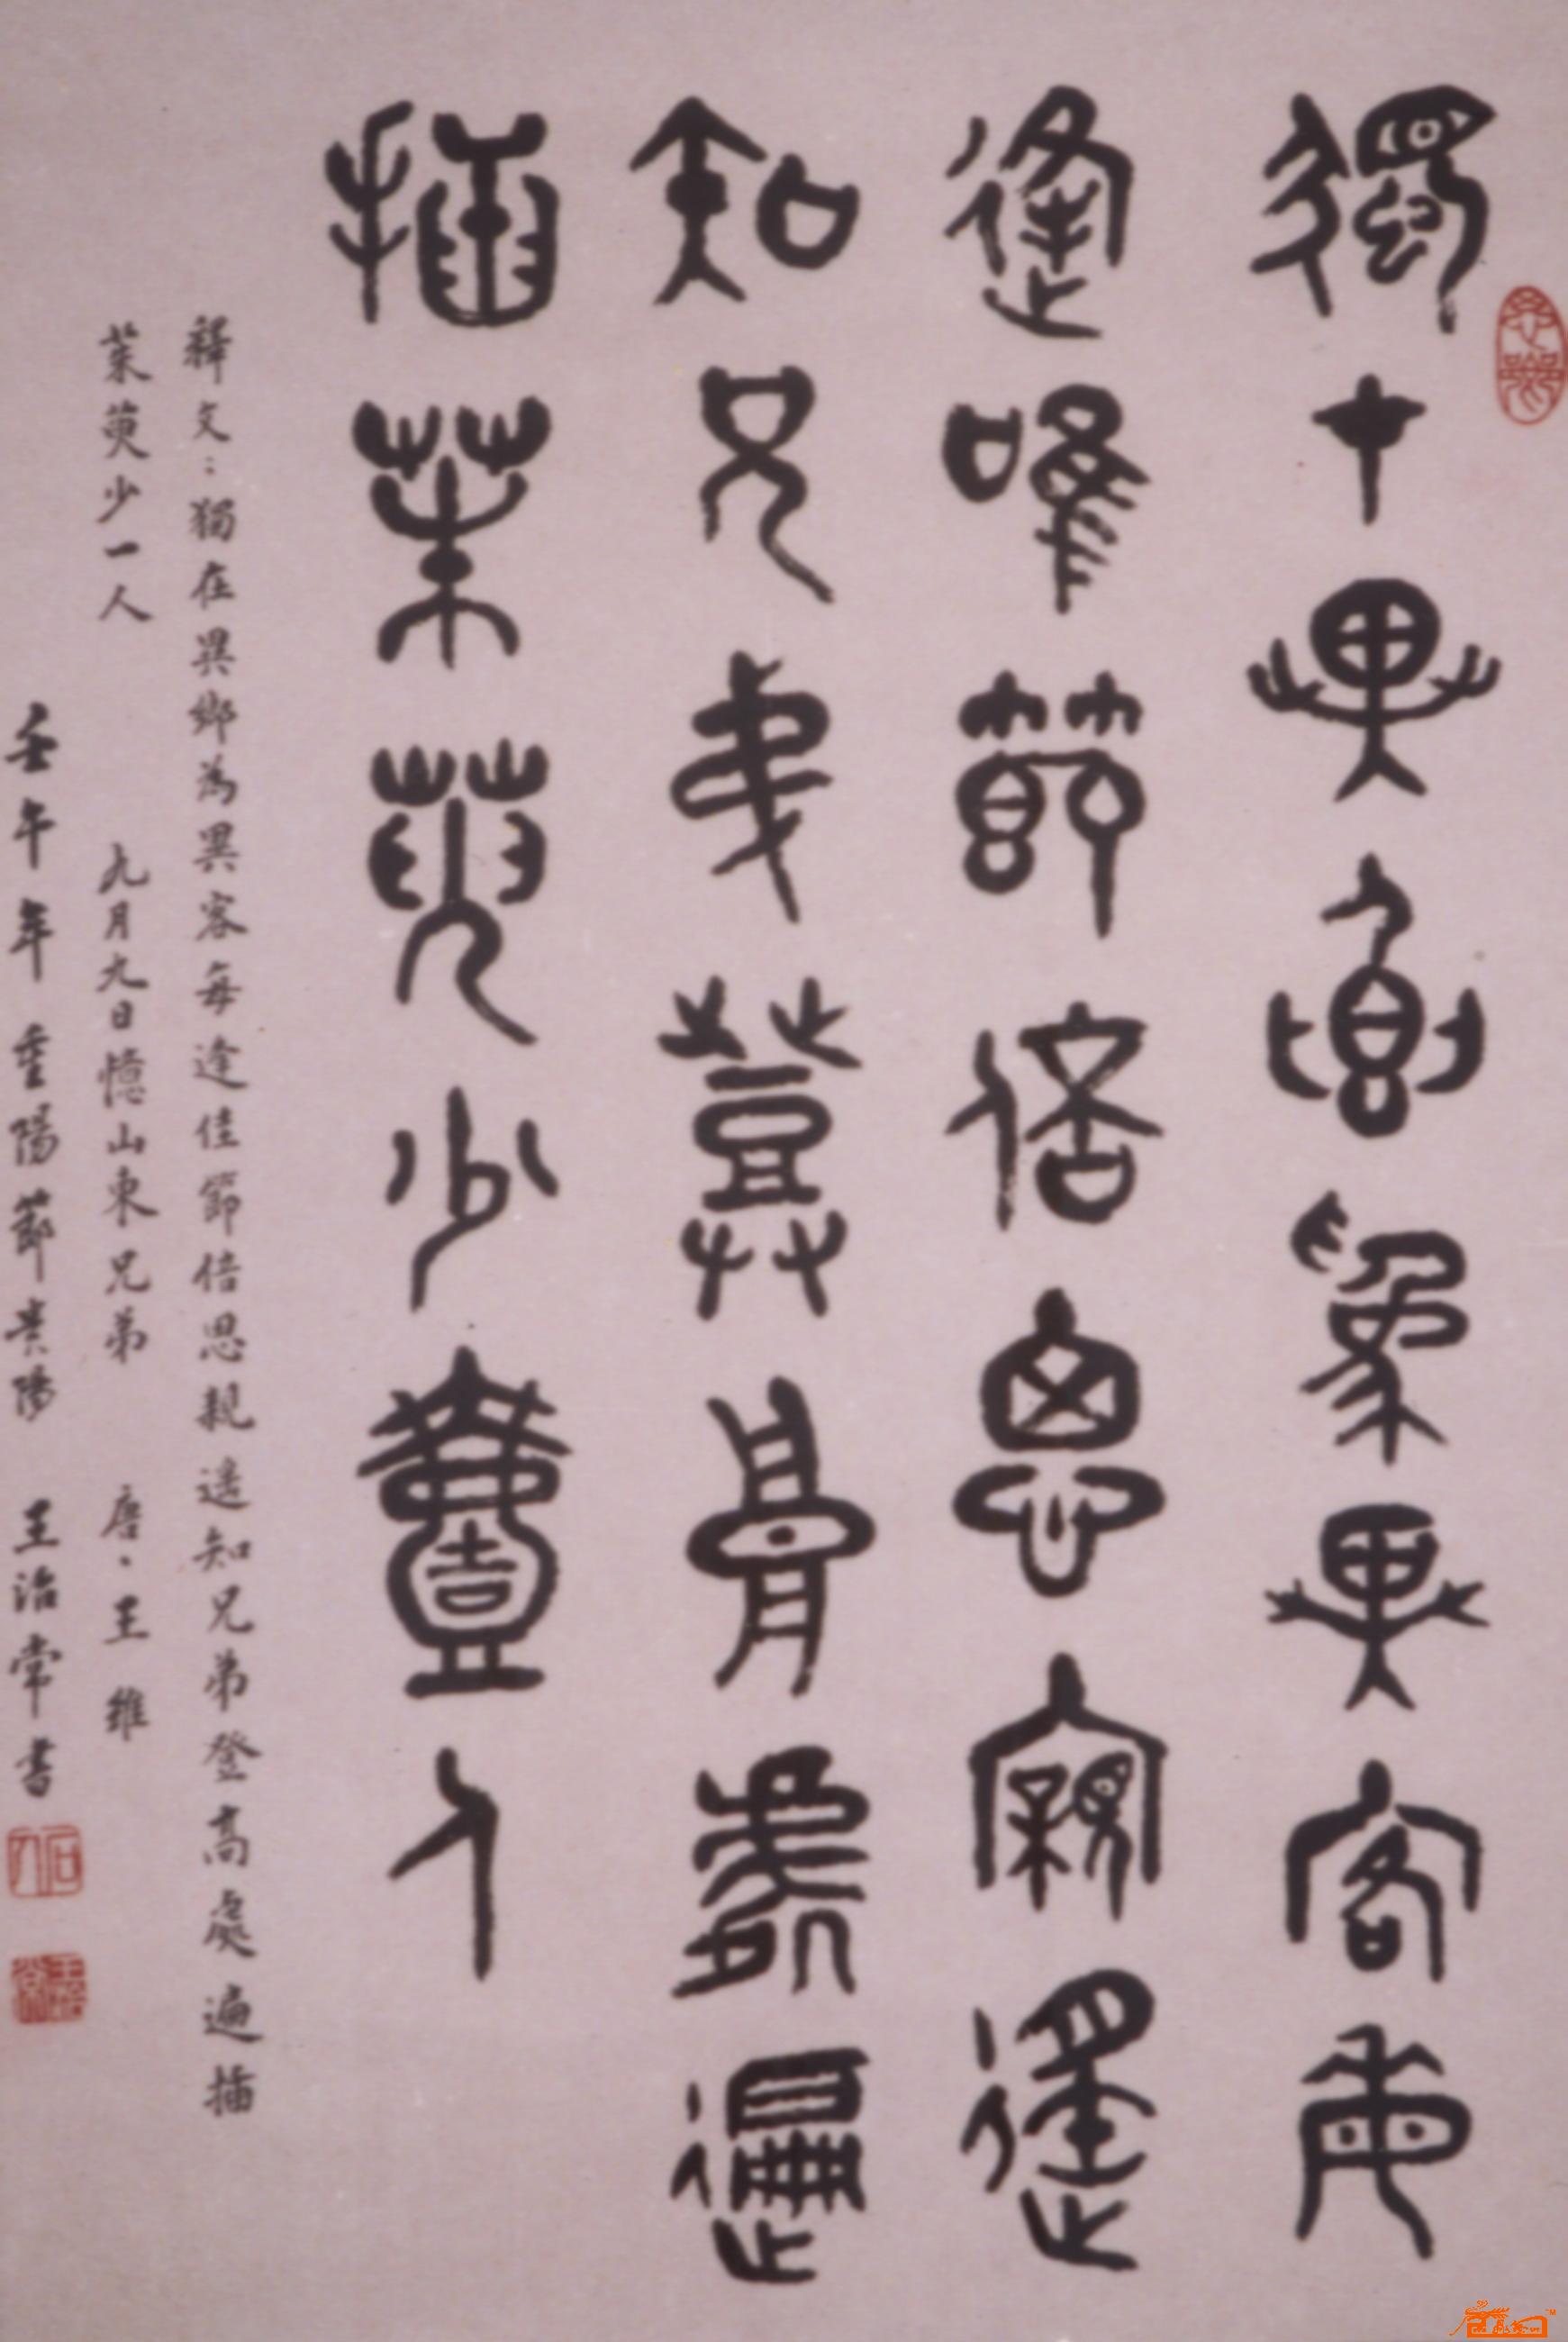 獨在異鄉為異客每
逢佳節倍思親遙
知兄弟登高處遍
插茱萸少壹人
釋文：獨在異鄉為異客每逢佳節倍思親遙知兄弟登高處遍插
茱萸少一人 九月九日憶山東兄弟 唐、王維
壬午年重陽節貴陽 王治常書